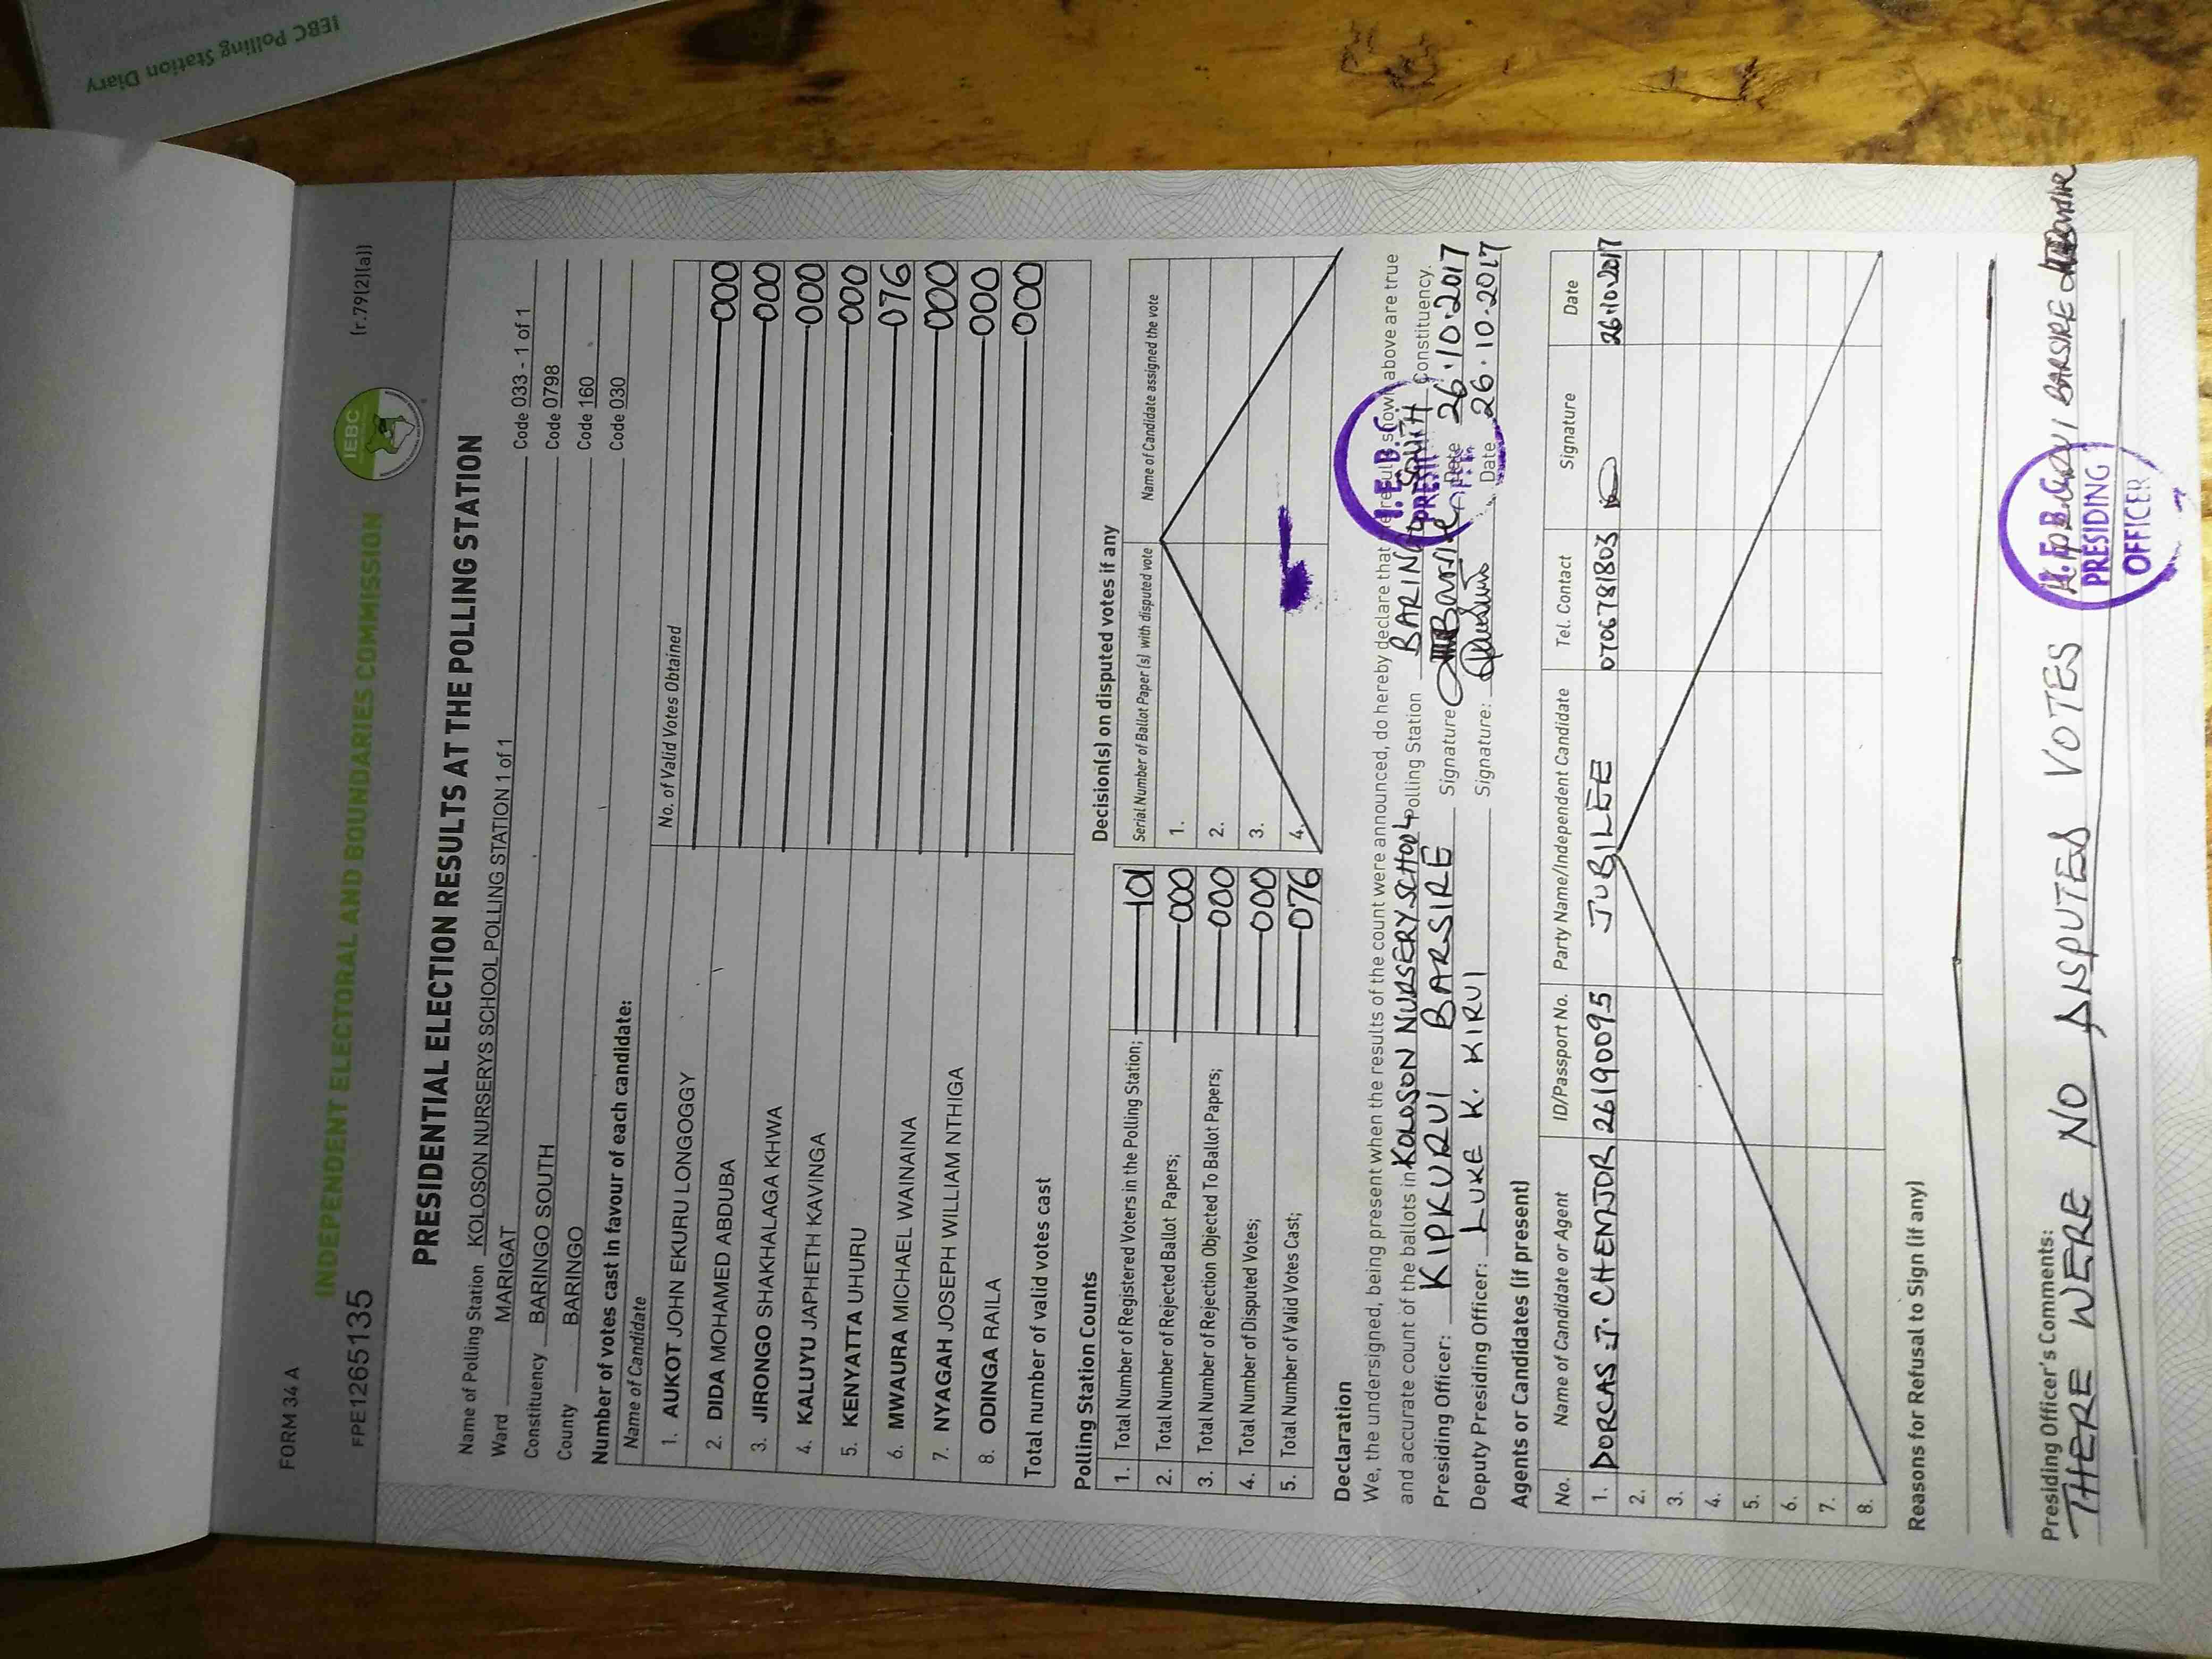 IEBC Polling Station Diary
FORM 34 A
(r.79(2)(a))
FPE1265135
INDEPENDENT ELECTORAL AND BOUNDARIES COMMISSION
IEBC
PRESIDENTIAL ELECTION RESULTS AT THE POLLING STATION
Name of Polling Station KOLOSON NURSERYS SCHOOL POLLING STATION 1 of 1 Code 033 - 1 of 1
Ward MARIGAT Code 0798
Constituency BARINGO SOUTH Code 160
County BARINGO Code 030
Number of votes cast in favour of each candidate:
Name of Candidate No. of Valid Votes Obtained
1. AUKOT JOHN EKURU LONGOGGY 000
2. DIDA MOHAMED ABDUBA 000
3. JIRONGO SHAKHALAGA KHWA 000
4. KALUYU JAPHETH KAVINGA 000
5. KENYATTA UHURU 076
6. MWAURA MICHAEL WAINAINA 000
7. NYAGAH JOSEPH WILLIAM NTHIGA 000
8. ODINGA RAILA 000
Total number of valid votes cast
Polling Station Counts
1. Total Number of Registered Voters in the Polling Station; 101
2. Total Number of Rejected Ballot Papers; 000
3. Total Number of Rejection Objected To Ballot Papers; 000
4. Total Number of Disputed Votes; 000
5. Total Number of Valid Votes Cast; 076
Decision(s) on disputed votes if any
Serial Number of Ballot Paper (s) with disputed vote Name of Candidate assigned the vote
1.
2.
3.
4.
Declaration
We, the undersigned, being present when the results of the count were announced, do hereby declare that the results shown above are true
and accurate count of the ballots in KOLOSON NURSERY SCHOOL Polling Station BARINGO SOUTH Constituency.
Presiding Officer: KIPKURUI BARSIRE Signature Barsire Date 26.10.2017
Deputy Presiding Officer: LUKE K. KIRUI Signature: Date 26.10.2017
I.E.B.C.
Agents or Candidates (if present)
No. Name of Candidate or Agent ID/Passport No. Party Name/Independent Candidate Tel. Contact Signature Date
1. DORCAS J. CHEMJOR 26190095 JUBILEE 0706781803 26.10.2017
2.
3.
4.
5.
6.
7.
8.
Reasons for Refusal to Sign (if any)
Presiding Officer's Comments:
THERE WERE NO DISPUTED VOTES KIPKURUI BARSIRE
I.E.B.C.
PRESIDING
OFFICER